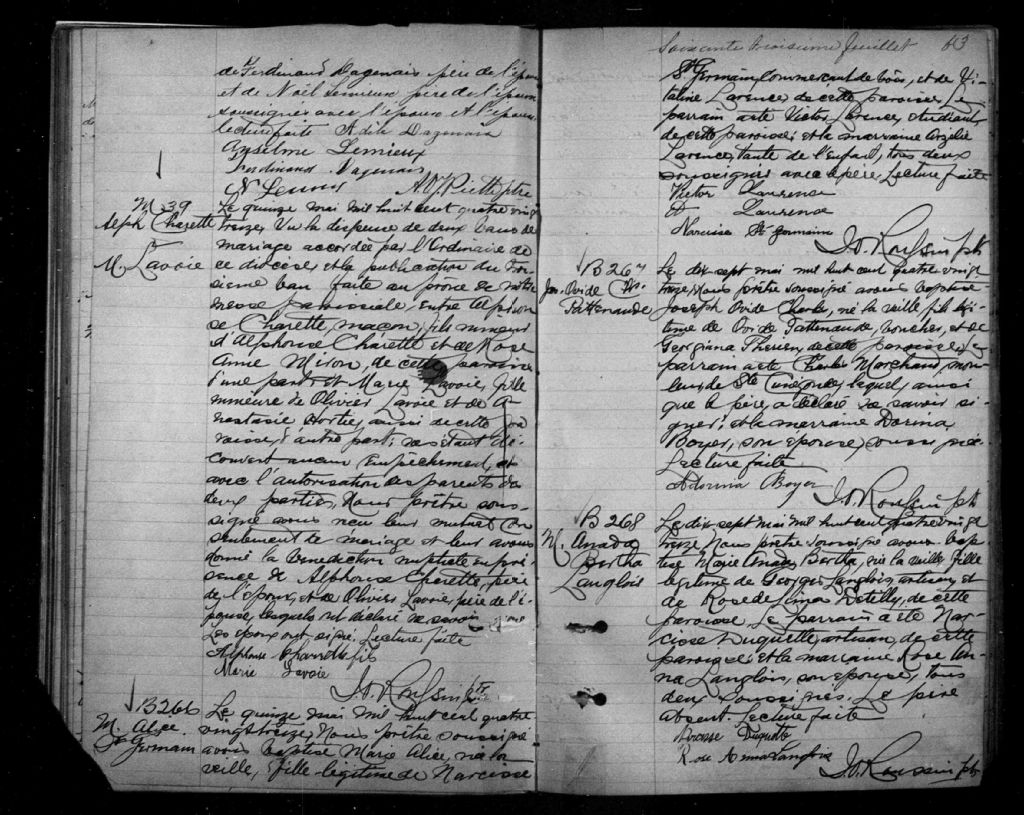 de Ferdinand Dagenais père de l'époux
et de Noël Lemieux père de l'épouse
soussignés avec l'époux et l'épouse
lecture faite Adela Dagenais
Anselme Lemieux
Ferdinand Dagenais
N. Lemieux A. Piette ptre
M 39
Alph. Charette
M. Lavoie
Le quinze mai mil huit cent quatre vingt
treize, Vu la dispense de deux bans de
mariage accordée par l'Ordinaire de
ce diocèse, et la publication du troi-
sième ban faite au prône de notre
messe paroissiale, entre Alphon-
se Charette, maçon, fils mineur
d'Alphonse Charette et de Rose
Anne Miron, de cette paroisse
d'une part; et Marie Lavoie, fille
mineure de Olivier Lavoie et de A-
nastasie Hortie, aussi de cette pa-
roisse, d'autre part; ne s'étant dé-
couvert aucun empêchement, et
avec l'autorisation des parents des
deux parties, Nous prêtre sous-
signé avons reçu leur mutuel con
sentement de mariage et leur avons
donné la bénédiction nuptiale en pré-
sence de Alphonse Charette, père
de l'époux, et de Olivier Lavoie, père de l'é-
pouse, lesquels ont déclaré ne savoir signer
Les époux ont signé. Lecture faite
Alphonse Charrette fils
Marie Lavoie
J.O. Roussin ptr
B 266
M. Alice
St Germain
Le quinze mai mil huit cent quatre-
vingt treize, Nous prêtre soussigné
avons baptisé Marie Alice, née la
veille, fille légitime de Narcisse
Soixante troisième feuillet 63
St Germain, commerçant de bois, et de Vi-
taline Larence, de cette paroisse. Le
parrain a été Victor Larence, étudiant
de cette paroisse; et la marraine Orzélie
Larence, tante de l'enfant, tous deux
soussignés avec le père. Lecture faite
Victor Laurence
Laurence
Narcisse St Germain
J.O. Roussin ptr
B 267
Jos. Ovide Chs.
Pattenaude
Le dix-sept mai mil huit cent quatre vingt
treize, Nous prêtre soussigné avons baptisé
Joseph Ovide Charles, né la veille, fils légi-
time de Ovide Pattenaude, boucher, et de
Georgiana Therien, de cette paroisse. Le
parrain a été Charles Marchand, mou-
leur, de Ste Cunégonde, lequel, ainsi
que le père, a déclaré ne savoir si-
gner; et la marraine Dorina
Boyer, son épouse, soussignée.
Lecture faite
Adorina Boyer
J.O. Roussin ptr
B 268
M. Anada
Bertha
Langlois
Le dix-sept mai mil huit cent quatre vingt
treize Nous prêtre soussigné avons bap-
tisé Marie Anada Bertha, née la veille, fille
légitime de Georges Langlois, artisan, et
de Rose de Lima Detilly, de cette
paroisse. Le parrain a été Nar-
cisse Duquette, artisan, de cette
paroisse; et la marraine Rose An-
na Langlois, son épouse, tous
deux soussignés. Le père
absent. Lecture faite
Narcisse Duquette
Rose Anna Langlois
J.O. Roussin ptr